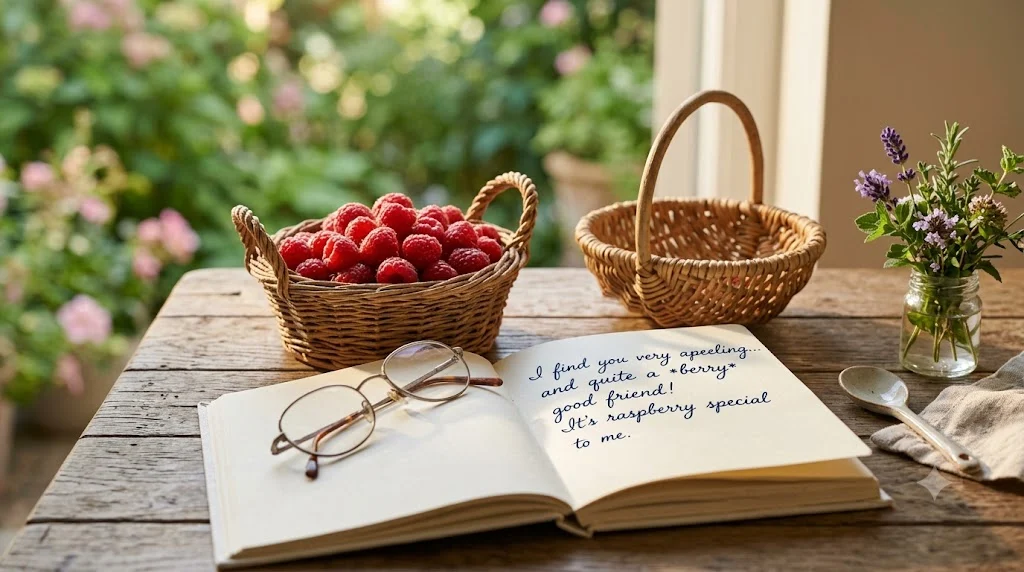 I find you very apeeling...
and quite a *berry*
good friend!
It's raspberry special
to me.